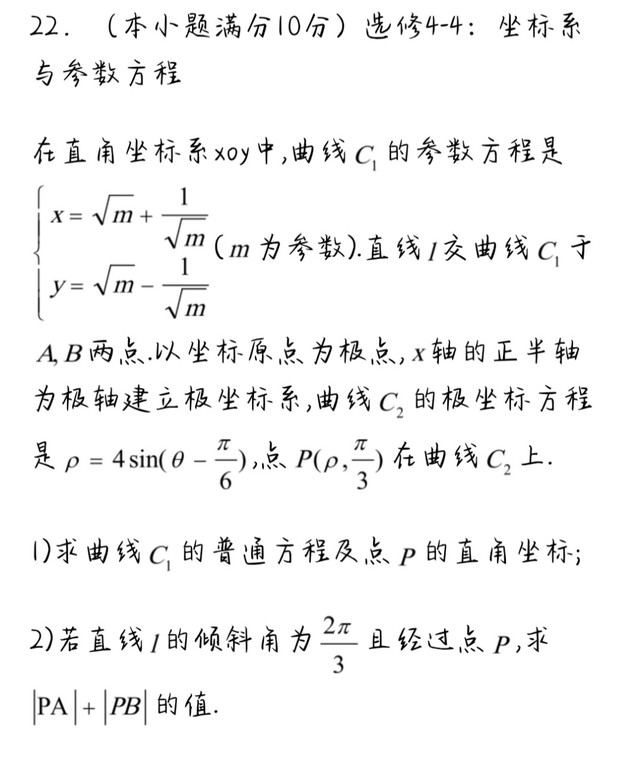 22. (本小题满分10分)选修4-4: 坐标系
与参数方程
在直角坐标系xoy中,曲线C₁的参数方程是
{x=√m+1/√m
y=√m-1/√m (m为参数).直线l交曲线C₁于
A,B两点.以坐标原点为极点,x轴的正半轴
为极轴建立极坐标系,曲线C₂的极坐标方程
是ρ=4sin(θ-π/6),点P(ρ,π/3)在曲线C₂上.
1)求曲线C₁的普通方程及点P的直角坐标;
2)若直线l的倾斜角为2π/3且经过点P,求
|PA|+|PB|的值.